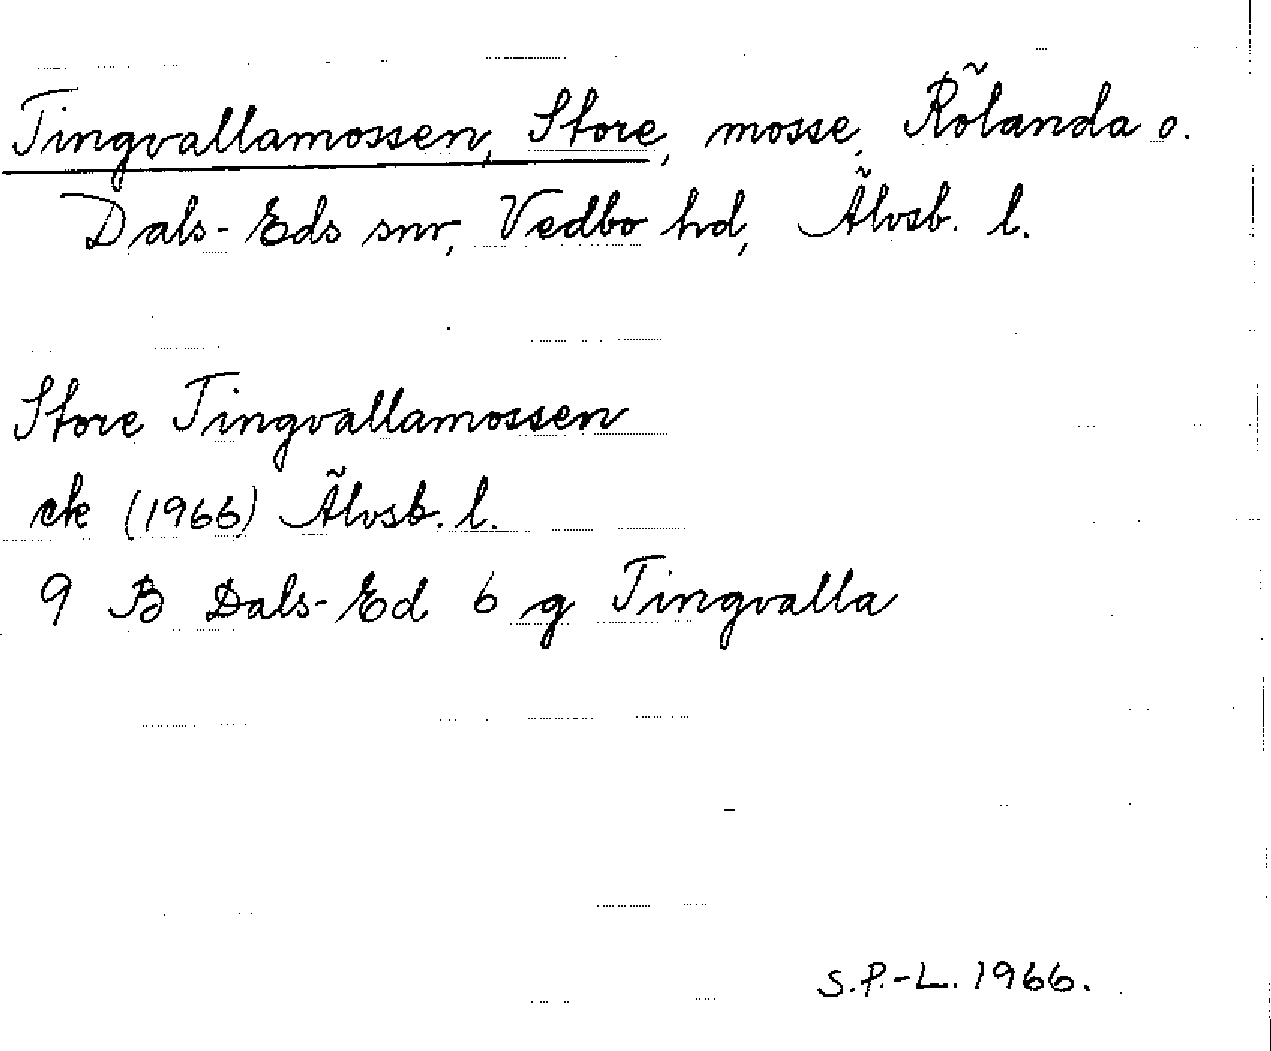 Tingvallamossen, Store, mosse, Rölanda o.
Dals-Eds snr, Vedbo hd, Älvsb. l.
Store Tingvallamossen
ek (1966) Älvsb. l.
9 B Dals-Ed 6 g Tingvalla
S.P.-L. 1966.